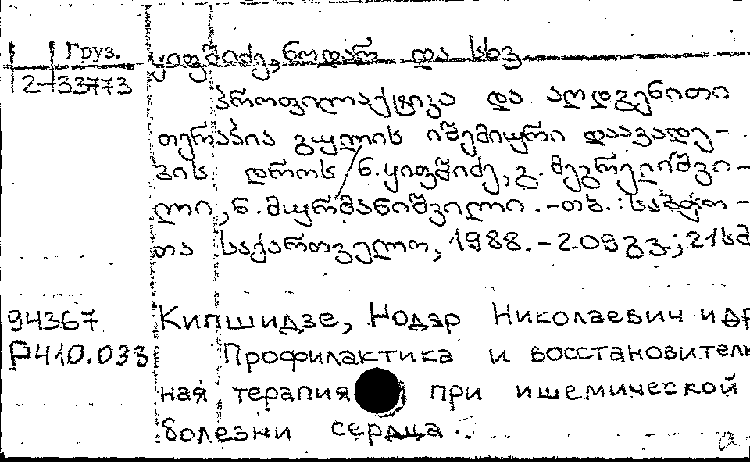 Груз.
2-33773
ყიფშიძე, ნოდარ და სხვ
პროფილაქტიკა და აღდგენითი
თერაპია გულის იშემიური დაავადე-
ბის დროს / ნ. ყიფშიძე, გ. მეგრელიშვი-
ლი, ნ. მჟრმანიშვილი. - თბ. : საბჭო-
თა საქართველო, 1988. - 209 გვ.; 21სმ
94367 Кипшидзе, Нодар Николаевич и др
Р410.033 Профилактика и восстановитель
ная терапия при ишемической
болезни сердца.